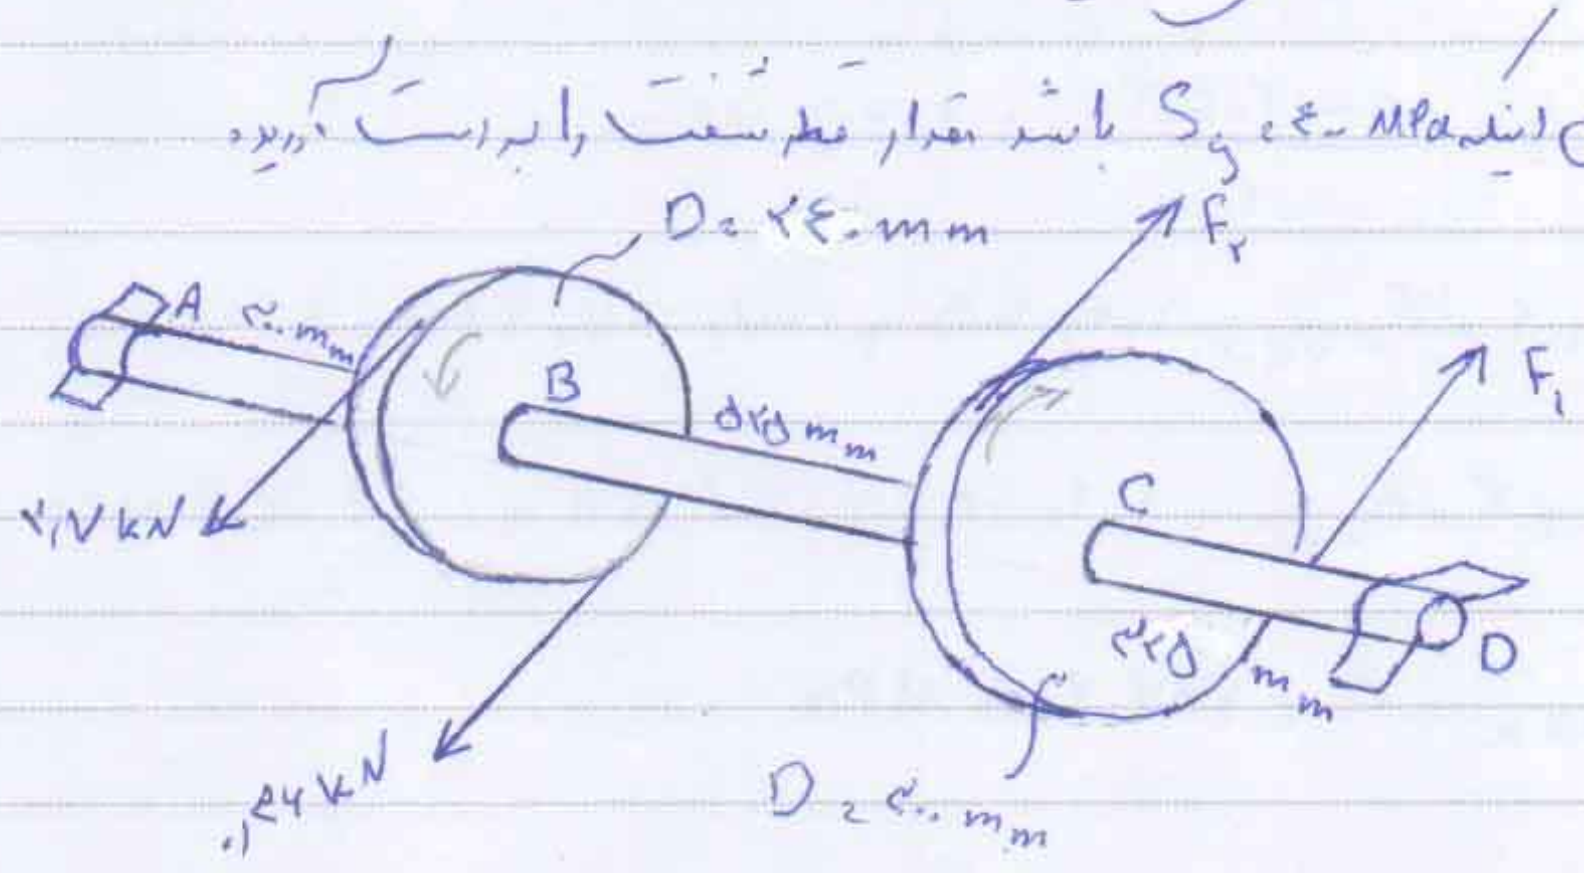 اینکه S_y = ۴۰۰ MPa باشد مقدار قطر شفت را بدست آورید
D = ۲۴۰ mm
F۲
A
۳۰۰ mm
B
۵۲۵ mm
F۱
۲,۷ kN
C
۲۲۵ mm
D
۰,۴۶ kN
D = ۳۰۰ mm